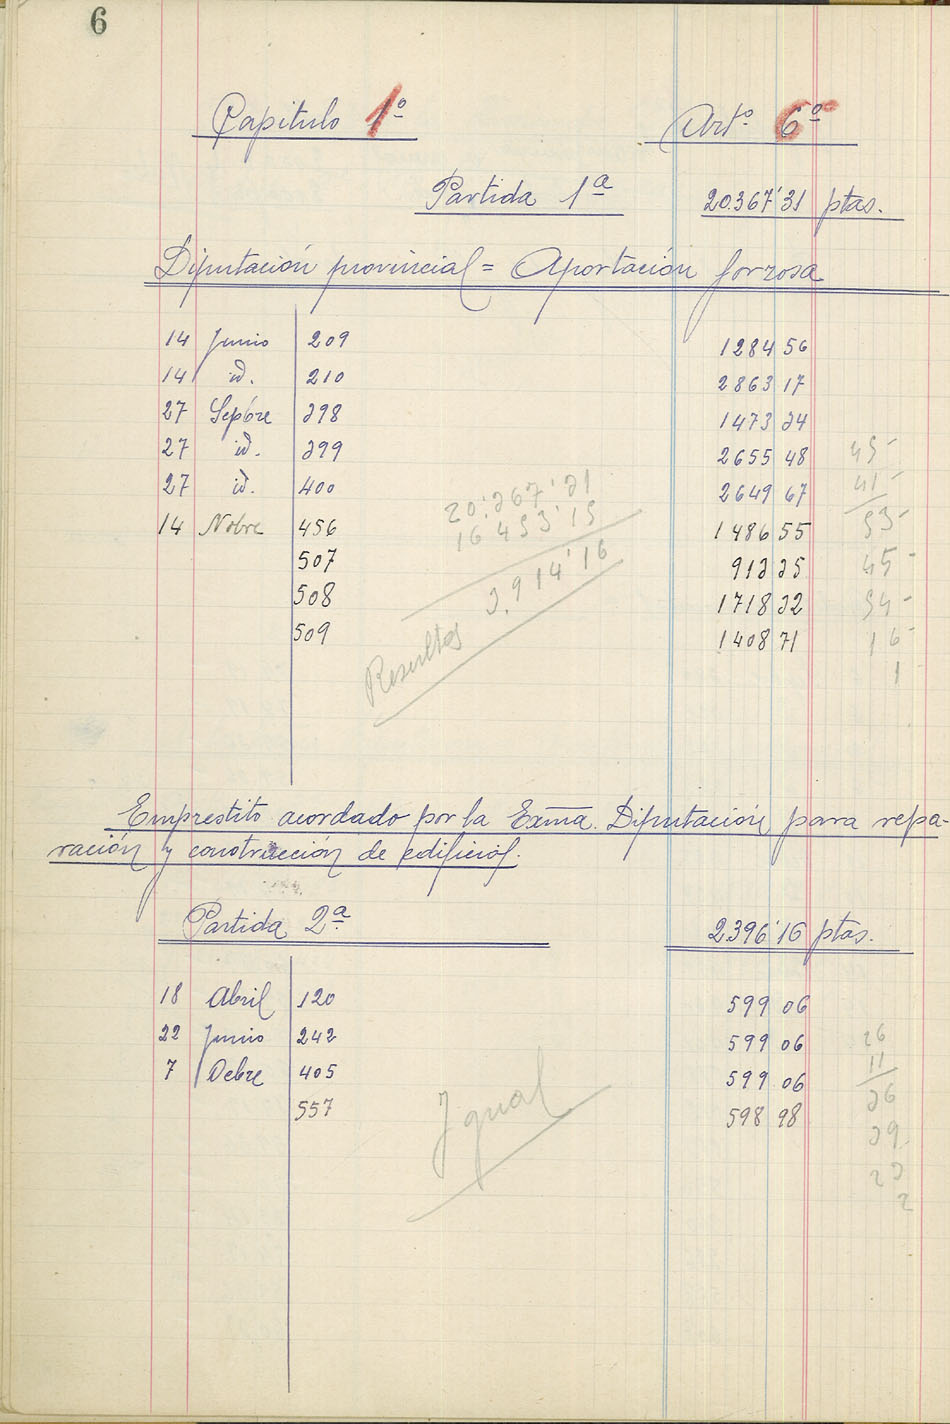 6
Capitulo 1º Artº 6º
Partida 1ª 20.367'31 ptas.
Diputación provincial = Aportación forzosa
14 Junio 209 1284 56
14 id. 210 2863 17
27 Sepbre 398 1473 34
27 id. 399 2655 48 45-
27 id. 400 2649 67 41-
14 Nobre 456 1486 55 53-
507 913 35 45-
508 1718 32 54-
509 1408 71 16-
1
20.367'31
16453'15
Resultos 3.914'16
Emprestito acordado por la Exma. Diputación para repa-
ración y construcción de edificios.
Partida 2ª 2396'16 ptas.
18 Abril 120 599 06
22 Junio 242 599 06 26
7 Ocbre 405 599 06 11
557 598 98 36
39
23
2
Igual